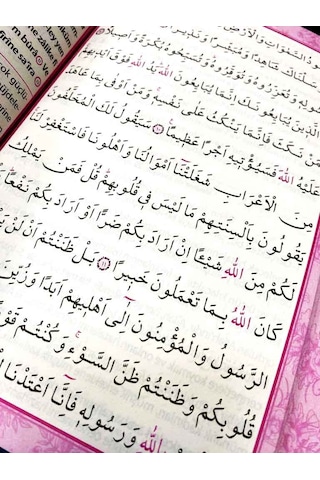 zâlike
m bûrâ
firine saîra
ok güçlü
السَّمٰوَاتِ وَالْاَرْضِ
شَاهِدًا وَمُبَشِّرًا وَنَذِيرًا
وَتُعَزِّرُوهُ وَتُوَقِّرُوهُ وَتُسَبِّحُوهُ بُكْرَةً وَاَصِيلًا
الَّذِينَ يُبَايِعُونَكَ اِنَّمَا يُبَايِعُونَ اللّٰهَ يَدُ اللّٰهِ فَوْقَ اَيْدِيهِمْ
نَكَثَ فَاِنَّمَا يَنْكُثُ عَلٰى نَفْسِهِ وَمَنْ اَوْفٰى بِمَا عَاهَدَ
عَلَيْهُ اللّٰهَ فَسَيُؤْتِيهِ اَجْرًا عَظِيمًا ۝١٠ سَيَقُولُ لَكَ الْمُخَلَّفُونَ
مِنَ الْاَعْرَابِ شَغَلَتْنَا اَمْوَالُنَا وَاَهْلُونَا فَاسْتَغْفِرْ لَنَا
يَقُولُونَ بِاَلْسِنَتِهِمْ مَا لَيْسَ فِي قُلُوبِهِمْ قُلْ فَمَنْ يَمْلِكُ
لَكُمْ مِنَ اللّٰهِ شَيْـًٔا اِنْ اَرَادَ بِكُمْ ضَرًّا اَوْ اَرَادَ بِكُمْ نَفْعًا
كَانَ اللّٰهُ بِمَا تَعْمَلُونَ خَبِيرًا ۝١١ بَلْ ظَنَنْتُمْ اَنْ لَنْ
الرَّسُولُ وَالْمُؤْمِنُونَ اِلٰٓى اَهْلِيهِمْ اَبَدًا وَزُيِّنَ
قُلُوبِكُمْ وَظَنَنْتُمْ ظَنَّ السَّوْءِ وَكُنْتُمْ قَوْمًا
بِاللّٰهِ وَرَسُولِهِ فَاِنَّٓا اَعْتَدْنَا